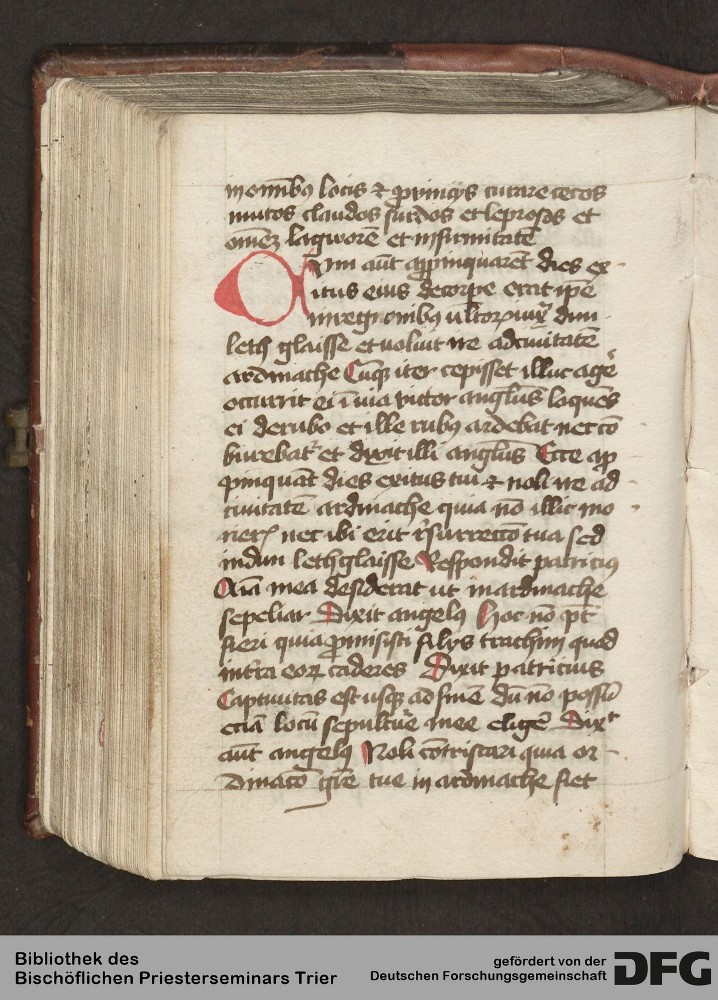 in om̄ibꝯ locis ⁊ ꝓvincijs curare cecos
mutos claudos surdos et leprosos et
om̄eꝫ lagworē et infirmitatē
Cum aūt appinquarēt dies ex-
itus eius de corpe erat ipē
in regionibꝯ
dun
leth glaisse et voluit ire ad ciuitatē
ardmache Cūqꝫ iter cepisset illuc agē
occurrit ei ī uia victor anglus loquēs
ei de rubo et ille rubꝯ ardebat nec cō
burebatᷣ et dixit illi anglus Ecce ap
pinquāt dies exitus tui ⁊ noli ire ad
ciuitatē ardmache quia nō illic mo
rierꝭ nec ibi erit rᷣsurreccō tua sed
in dun lethglaisse Respondit patriciꝯ
Aīa mea desiderat ut in ardmache
sepeliar Dixit angelꝯ Hoc nō pt̄
fieri quia ꝓmisisti filijs trachim quod
intra eoꝝ caderes Dixit patricius
Captiuitas est usqꝫ ad finē dū nō possū
eciā locū sepultuᷣe mee eligē Dixᵗ
aūt angelꝯ Noli cōtristari quia or-
dinacō gr̄e tue in ardmache fiet
Bibliothek des
Bischöflichen Priesterseminars Trier
gefördert von der
Deutschen Forschungsgemeinschaft
DFG